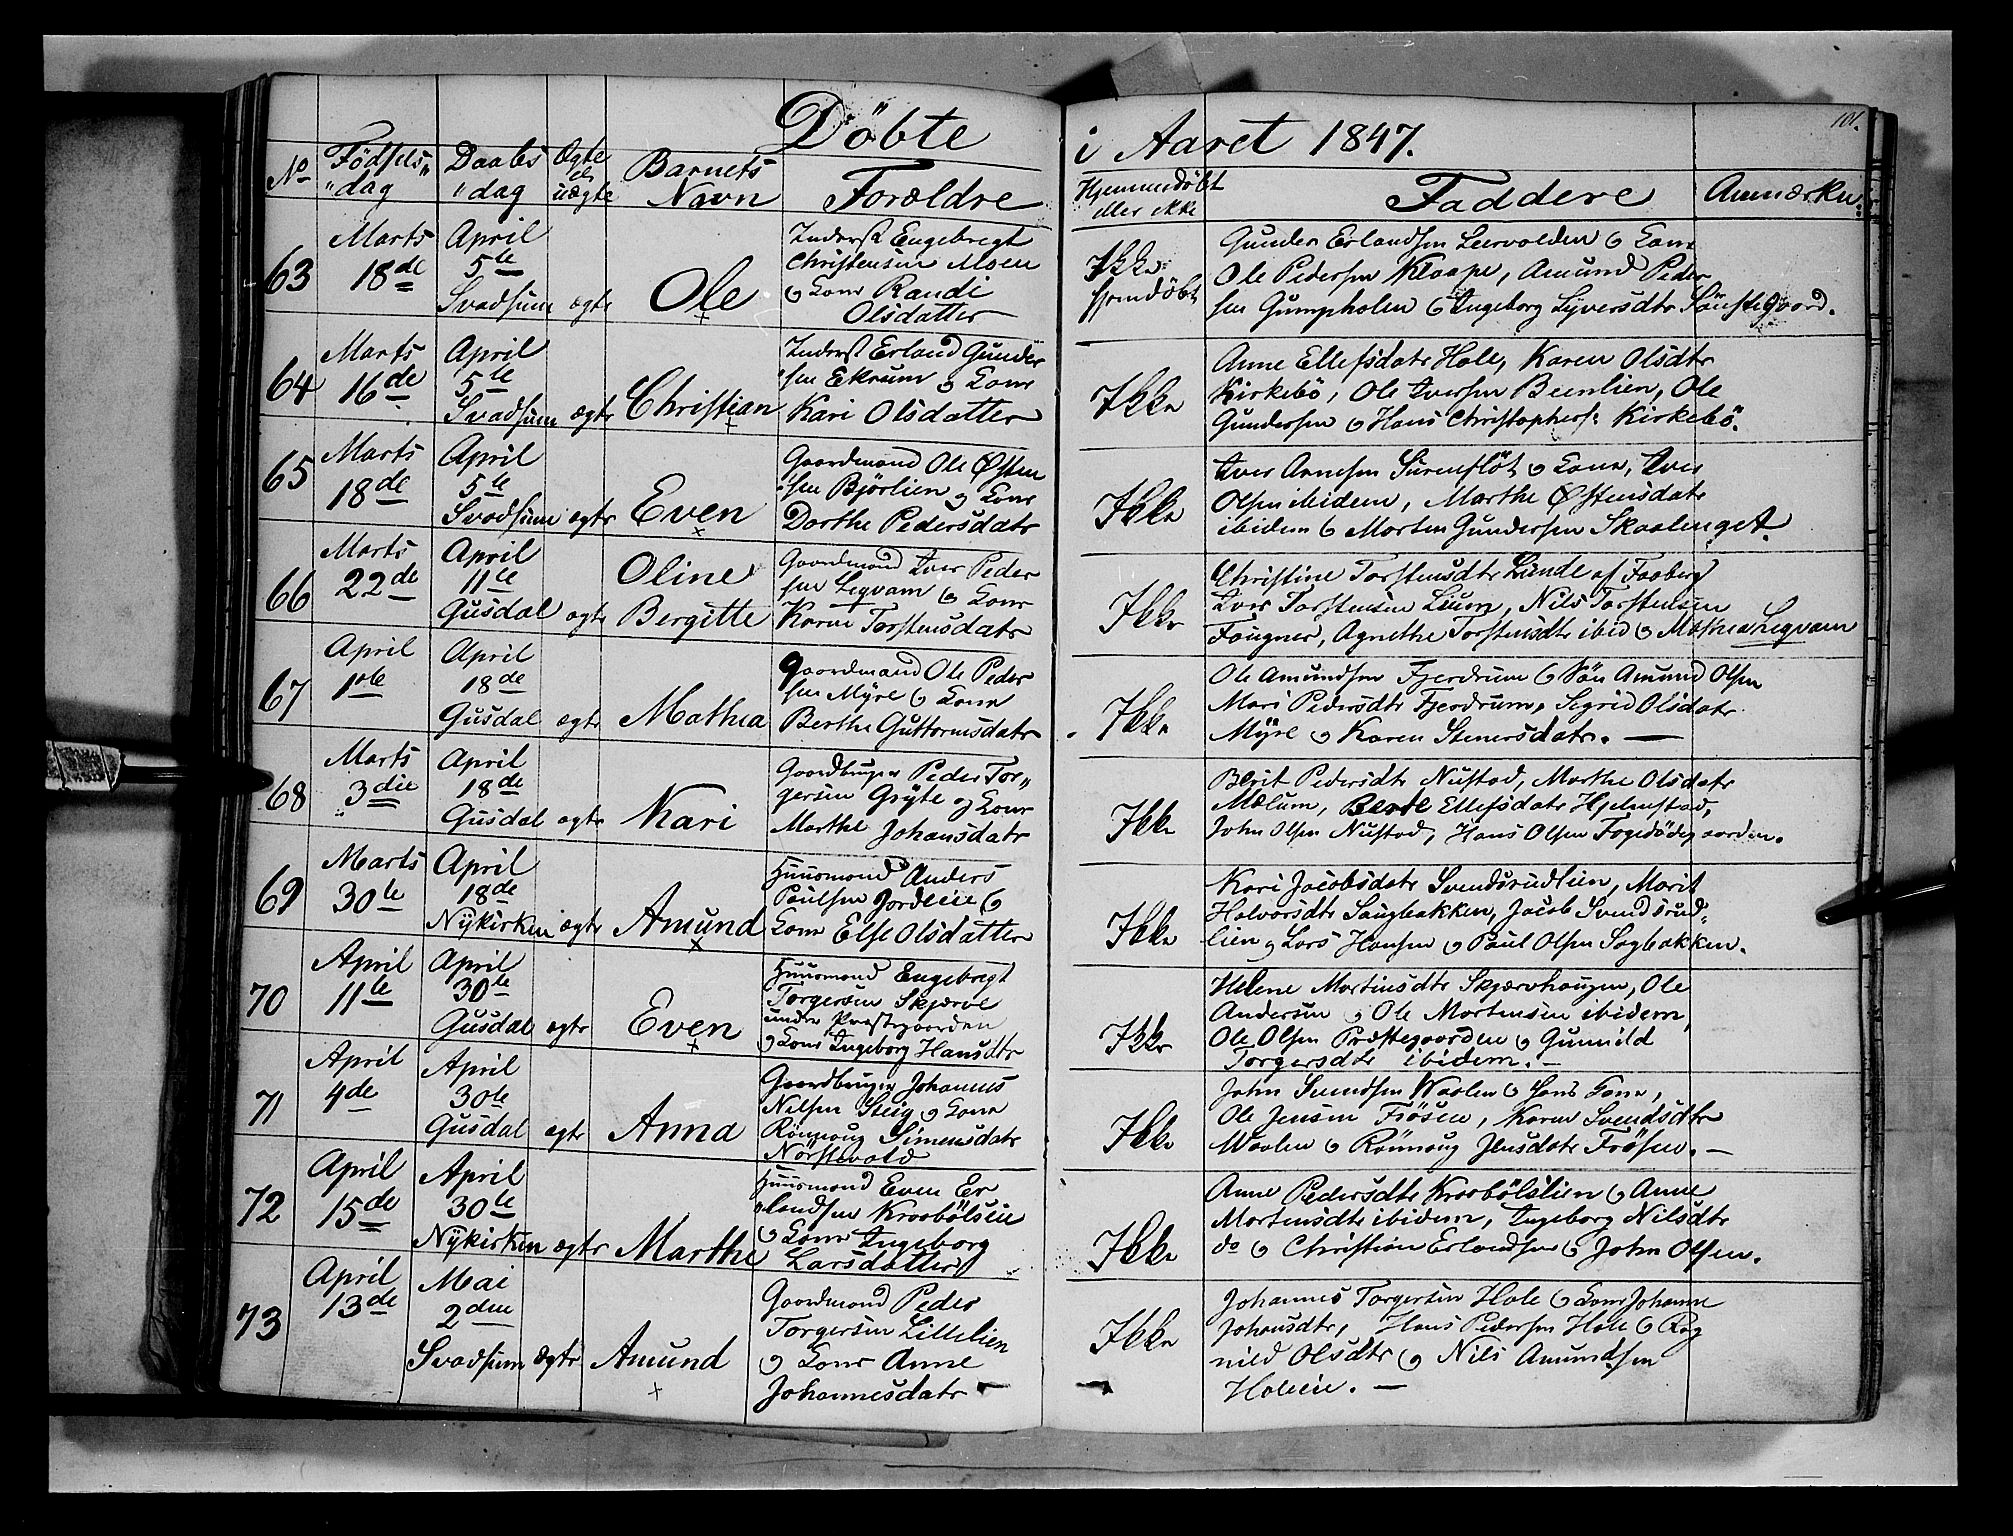 Döbte i Aaret 1847.
101.
No Födsels dag Daabs dag Ægte el. uægte Barnets Navn Forældre Hjemmedöbt eller ikke Faddere Anmærkn:
63
Marts
18de
April
5te
Svadsum ægte
Ole
Inderst Engebregt
Christensen Moen
og Kone Randi
Olsdatter
Ikke
hjemdöbt
Gunder Erlandsen Leervolden og Kone
Ole Pedersen Klaape, Amund Peder
sen Gumpholen og Ingeborg Syversdtr Sönstegaard.
64
Marts
16de
April
5te
Svadsum ægte
Christian
Inderst Erland Gunder
sen Ekrum og Kone
Kari Olsdatter
Ikke
Anne Ellefsdatr Hole, Karen Olsdtr
Kirkebö, Ole Iversen Beenlien, Ole
Gundersen og Hans Christophers: Kirkebö.
65
Marts
18de
April
5te
Svadsum ægte
Even
Gaardmand Ole Østen
sen Björlien og Kone
Dorthe Pedersdatr
Ikke
Iver Arnesen Surenflöt og Kone, Iver
Olsen ibidem, Marthe Østensdatr
ibidem og Morten Gundersen Skaalenget.
66
Marts
22de
April
11te
Gusdal ægte
Oline
Bergitte
Gaardmand Iver Peder
sen Legvam og Kone
Karen Torstensdatr
Ikke
Christine Torstensdtr Lunde af Faaberg
Iver Torstensen Leum, Nils Torstensen
Fougner, Agnethe Torstensdtr ibid og Mathea Legvam
67
April
1ste
April
18de
Gusdal ægte
Mathea
Gaardmand Ole Peder
sen Myre og Kone
Berthe Guttormsdatr
Ikke
Ole Amundsen Fjerdrum og Sön Amund Olsen
Mari Pedersdtr Fjerdrum, Sigrid Olsdatr
Myre og Karen Stenersdatr. —
68
Marts
3die
April
18de
Gusdal ægte
Kari
Gaardbruger Peder Tor„
gersen Gryte og Kone
Marthe Johansdatr
Ikke
Berit Pedersdtr Nustad, Marthe Olsdatr
Mælum, Berte Ellefsdatr Hjelmstad,
John Olsen Nustad, Hans Olsen Fogedödegaarden.
69
Marts
30te
April
18de
Nykirken ægte
Amund
Huusmand Anders
Poulsen Jordleie og
Kone Else Olsdatter
Ikke
Kari Jacobsdatr Svendsrudlien, Marit
Halvorsdtr Saugbakken, Jacob Svendsrud„
lien og Lars Hansen og Paul Olsen Sagbakken.
70
April
11te
April
30te
Gusdal ægte
Even
Huusmand Engebregt
Torgersen Skjærve
under Præstegaarden
og Kone Ingeborg Hansdtr
Ikke
Helene Martinsdtr Skjærvhaugen, Ole
Andersen og Ole Mortensen ibidem,
Ole Olsen Præstegaarden og Gunnild
Torgersdtr ibidem. —
71
April
4de
April
30te
Gusdal ægte
Anna
Gaardbruger Johannes
Nilsen Steig og Kone
Rönnoug Simensdatr
Nörstevold
Ikke
John Svendsen Waalen og hans Kone,
Ole Jensen Frösen, Karen Svendsdtr
Waalen og Rönnoug Jensdatr Frösen. —
72
April
15de
April
30te
Nykirken ægte
Marthe
Huusmand Even Er
landsen Kroobölseie
og Kone Ingeborg
Larsdatter
Ikke
Anne Pedersdtr Kroobölslien og Anne
Mortensdtr ibidem, Ingeborg Nilsdtr
do og Christian Erlandsen og John Olsen.
73
April
13de
Mai
2den
Svadsum ægte
Amund
Gaardmand Peder
Torgersen Lillelien
og Kone Anne
Johannesdatr
Ikke
Johannes Torgersen Hole og Kone Johanne
Johansdtr, Hans Pedersen Hole og Rag
nild Olsdtr og Nils Amundsen
Holeeie. —